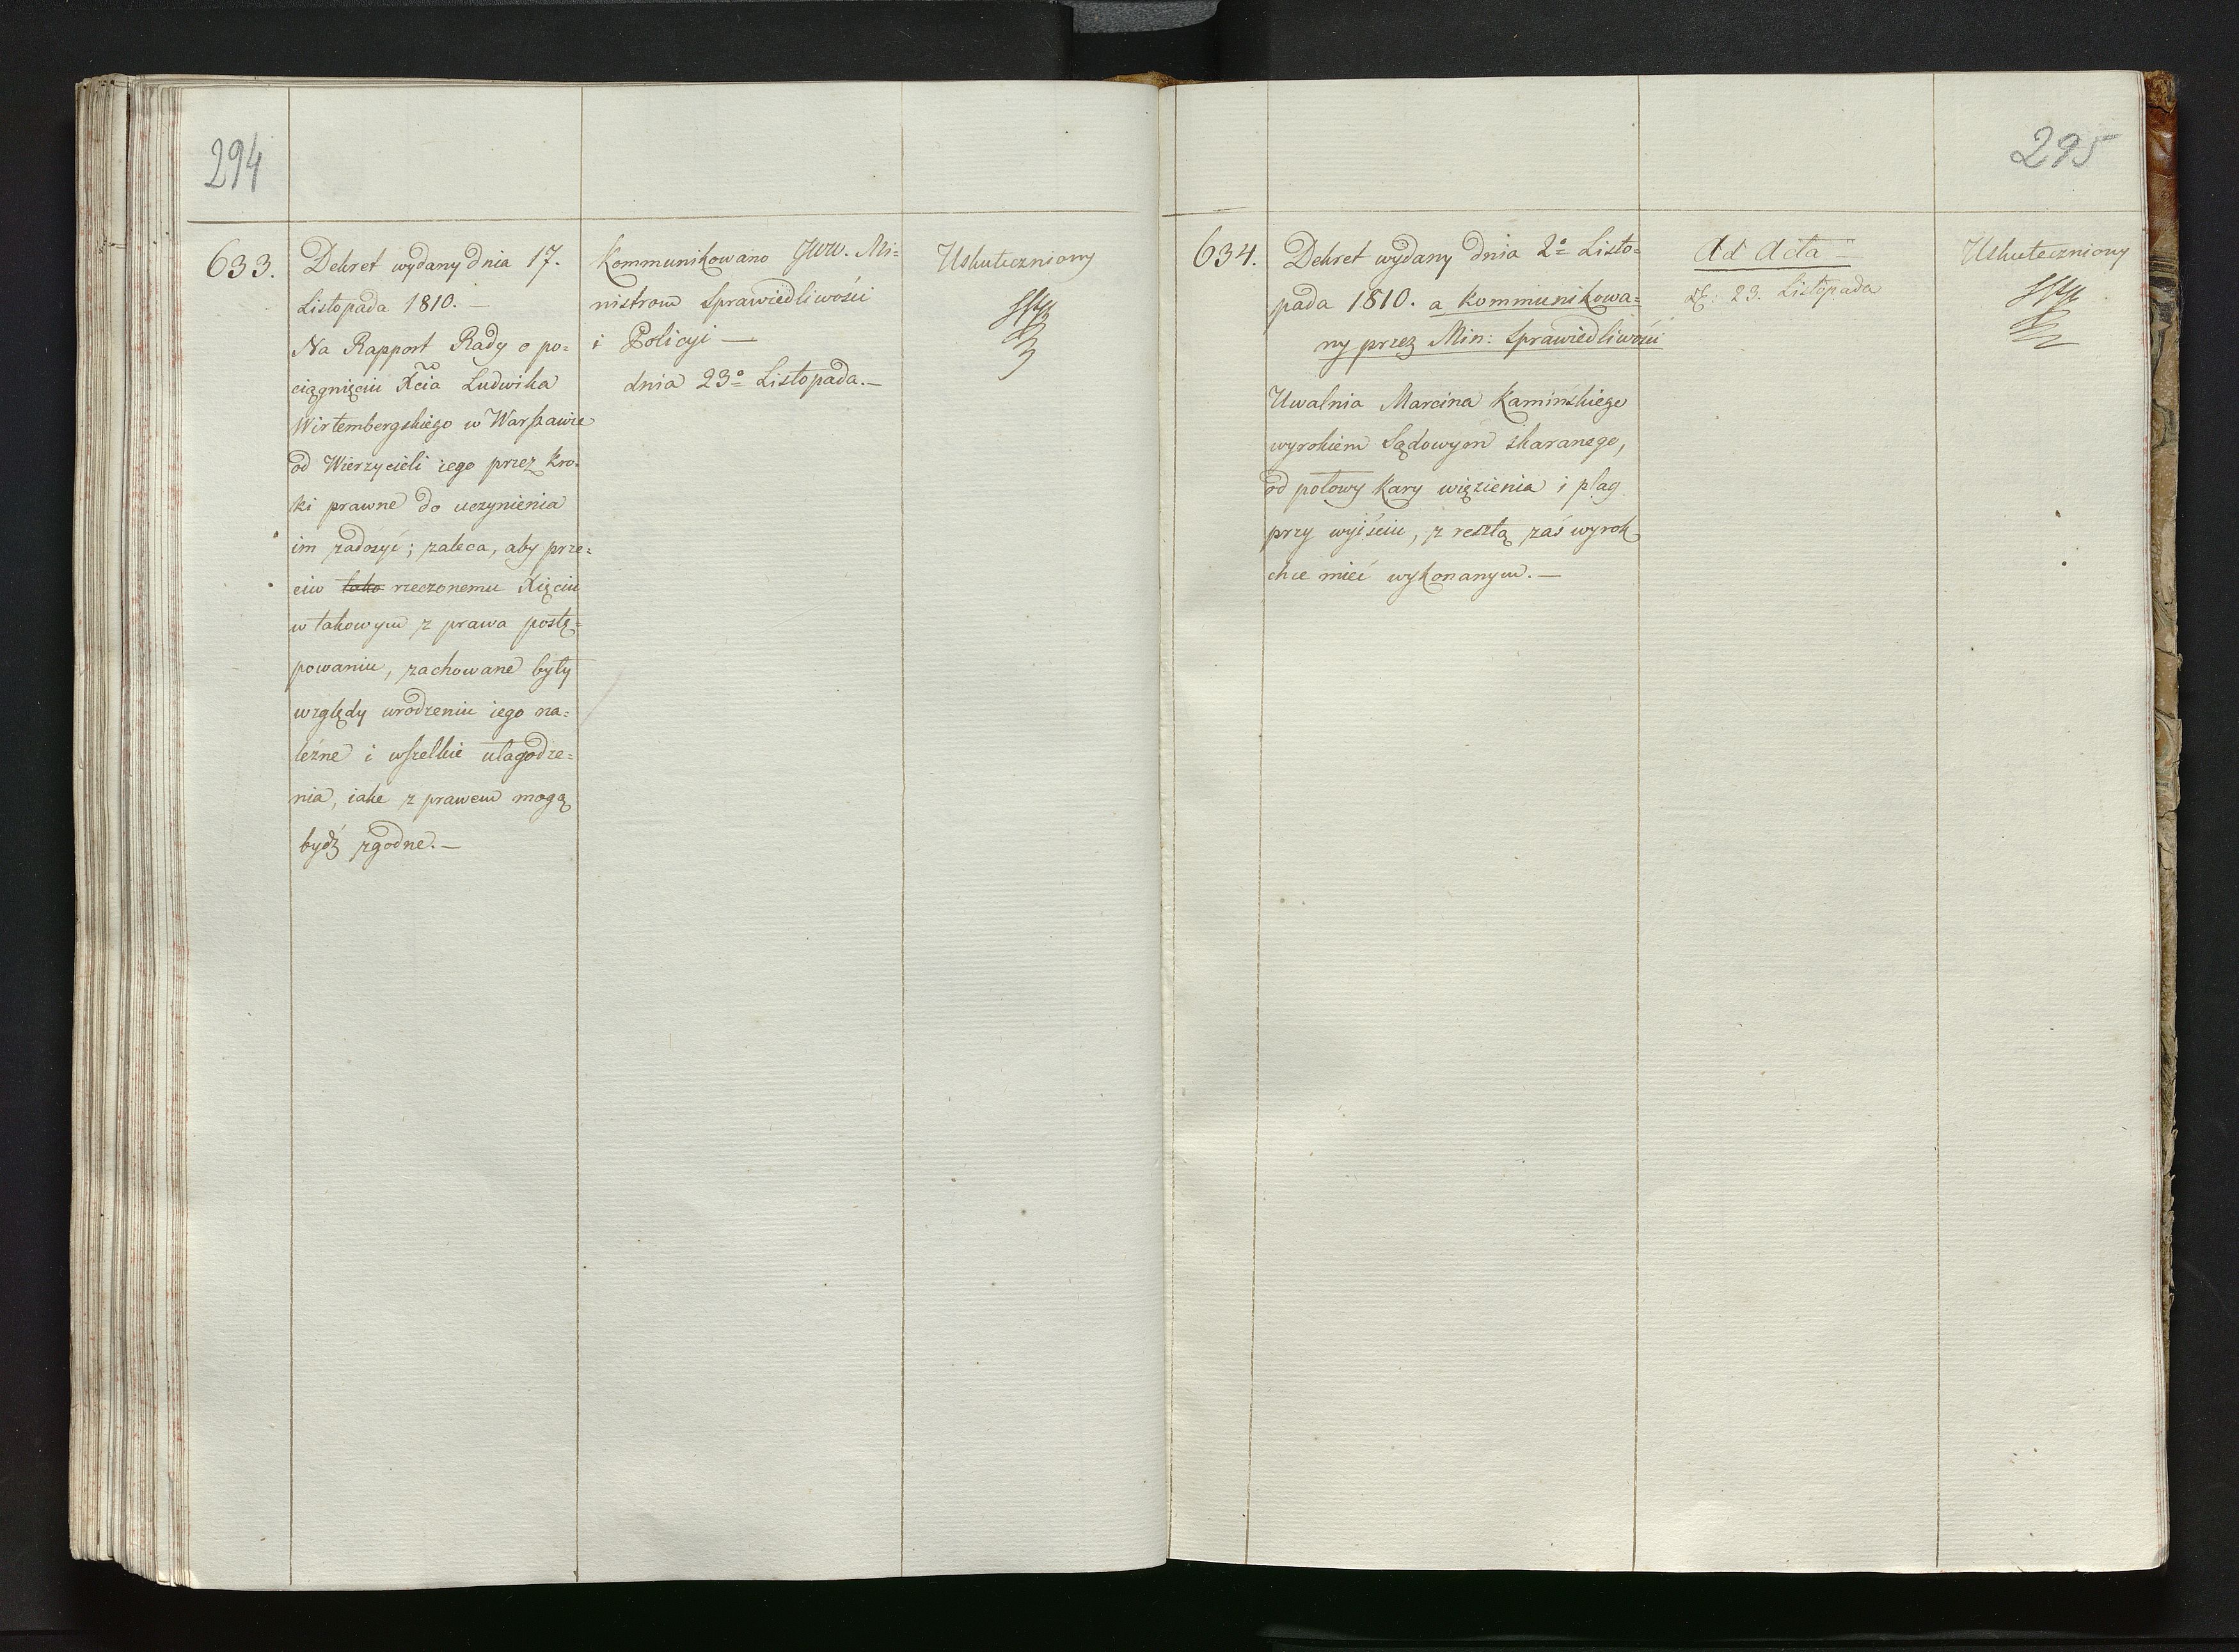 294
633.
Dekret wydany dnia 17.
Listopada 1810. —
Na Rapport Rady o po=
ciągnięciu Xcia Ludwika
Wirtembergskiego w Warszawie
od Wierzycieli iego przez kro-
ki prawne do uczynienia
im zadosyć; zaleca, aby prze=
ciw tako rzeczonemu Xięciu
w takowym z prawa postę=
powaniu, zachowane były
względy urodzeniu iego na=
leźne i wszelkie ułagodze=
nia, iake z prawem mogą
bydź zgodne. —
Kommunikowano JWW. Mi=
nistrom Sprawiedliwości
i Policyi —
dnia 23º Listopada. —
Uskuteczniony
295
634.
Dekret wydany dnia 2º Listo=
pada 1810. a kommunikowa=
ny przez Min: Sprawiedliwości
Uwalnia Marcina Kamińskiego
wyrokiem Sądowym skaranego,
od połowy kary więzienia i plag
przy wyiściu, z resztą zaś wyrok
chce mieć wykonanym. —
Ad Acta
23. Listopada
Uskuteczniony